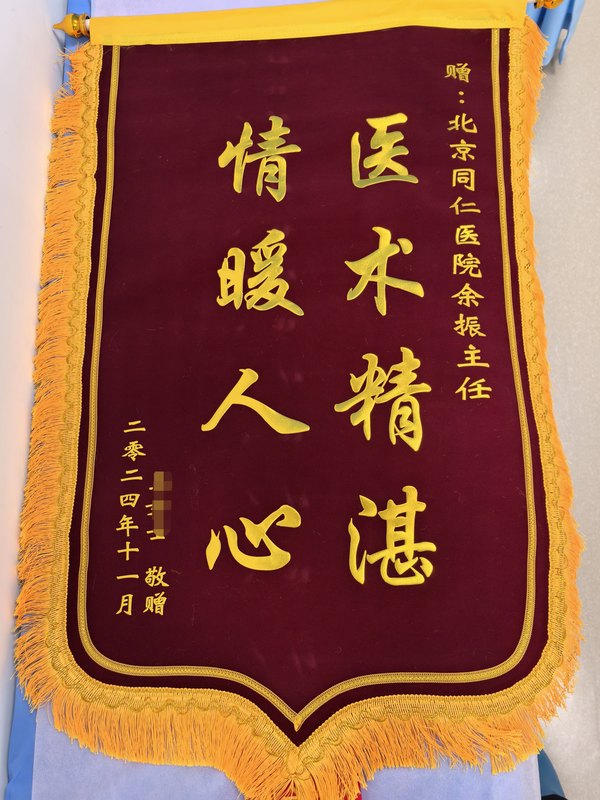 赠：北京同仁医院余振主任
医术精湛
情暖人心
敬赠
二零二四年十一月